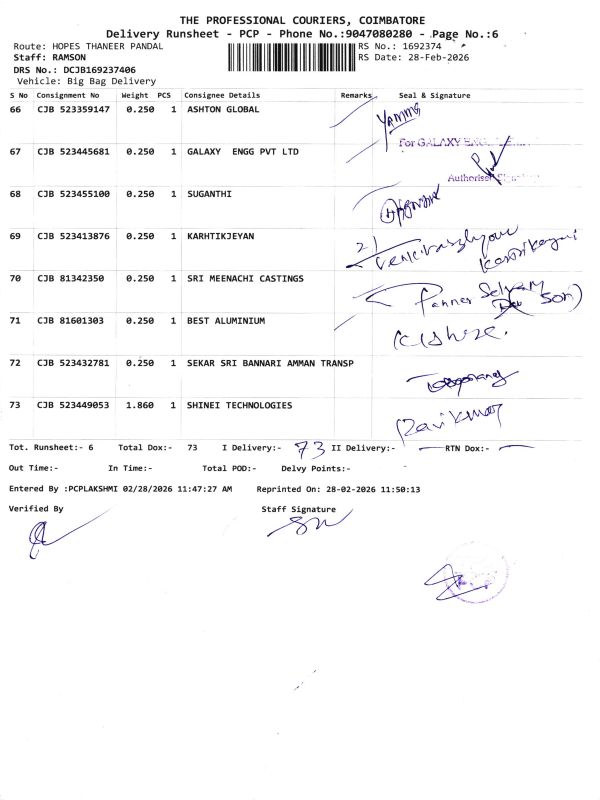 THE PROFESSIONAL COURIERS, COIMBATORE
Delivery Runsheet - PCP - Phone No.:9047080280 - Page No.:6
Route: HOPES THANEER PANDAL
RS No.: 1692374
Staff: RAMSON
RS Date: 28-Feb-2026
DRS No.: DCJB169237406
Vehicle: Big Bag Delivery
S No Consignment No Weight PCS Consignee Details Remarks Seal & Signature
66 CJB 523359147 0.250 1 ASHTON GLOBAL
For GALAXY ENG
67 CJB 523445681 0.250 1 GALAXY ENGG PVT LTD
Authorised
68 CJB 523455100 0.250 1 SUGANTHI
69 CJB 523413876 0.250 1 KARHTIKJEYAN
70 CJB 81342350 0.250 1 SRI MEENACHI CASTINGS
71 CJB 81601303 0.250 1 BEST ALUMINIUM
72 CJB 523432781 0.250 1 SEKAR SRI BANNARI AMMAN TRANSP
73 CJB 523449053 1.860 1 SHINEI TECHNOLOGIES
Ravikumar
Tot. Runsheet:- 6 Total Dox:- 73 I Delivery:- 73 II Delivery:- RTN Dox:-
Out Time:- In Time:- Total POD:- Delvy Points:-
Entered By :PCPLAKSHMI 02/28/2026 11:47:27 AM Reprinted On: 28-02-2026 11:50:13
Verified By Staff Signature